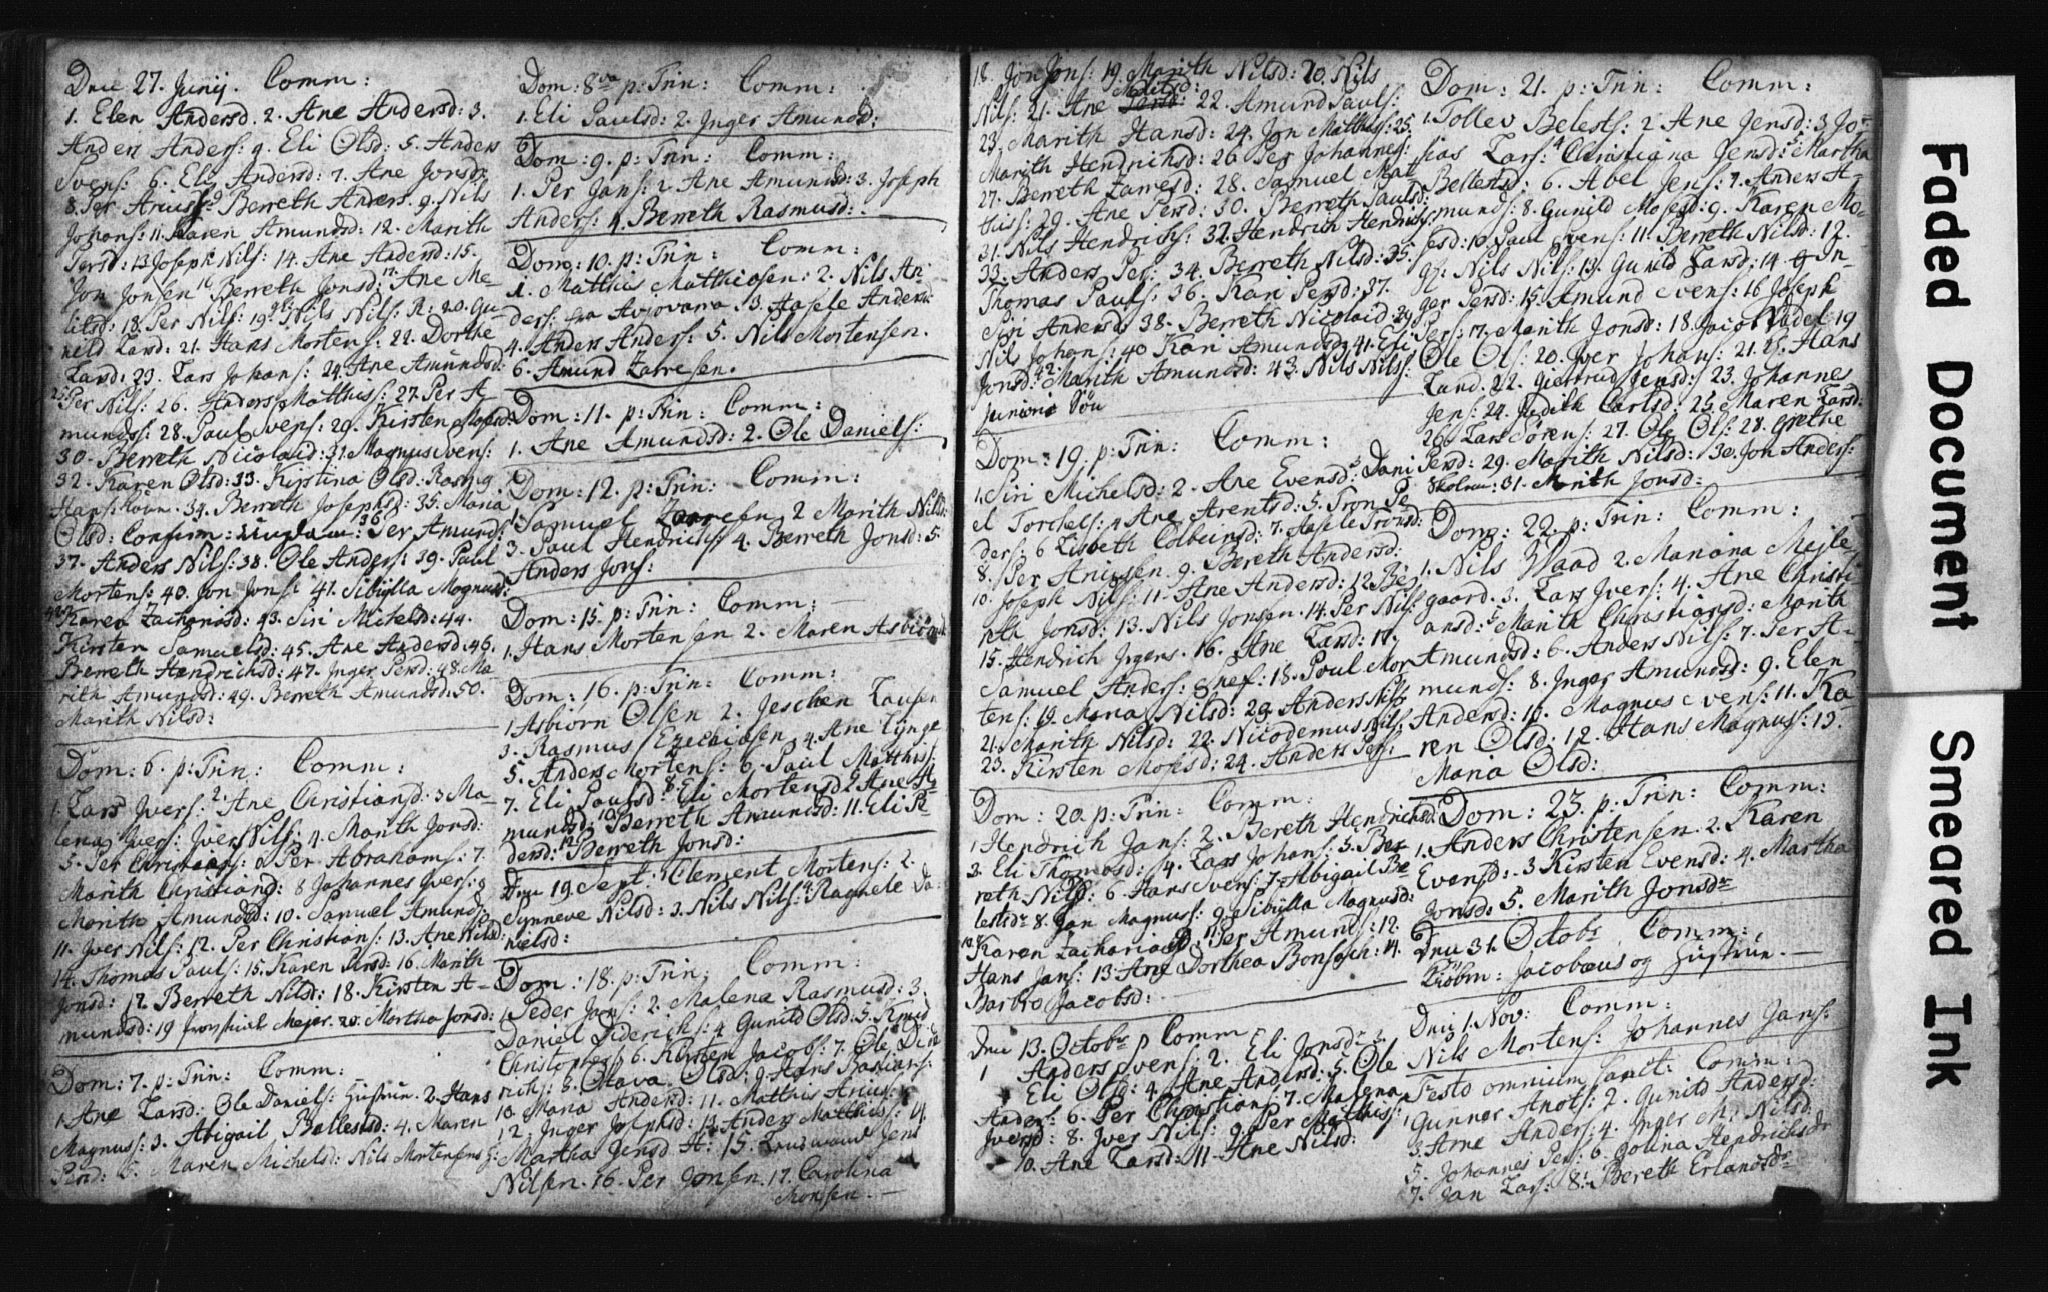 Dnie 27. Junij. Comm:
1. Elen Andersd. 2. Ane Andersd: 3.
Anders Anders: 4. Eli Olsd: 5. Anders
Svens: 6. Eli Andersd: 7. Ane Jonsd:
8. Per Berreth Anders. 9. Nils
Johans: 11. Karen Amundsd: 12. Marith
Persd: 13 Joseph Nils: 14. Ane Andersd: 15.
Jon Jonsen 16 Berreth Jonsd: 17. Ane Me-
litsd: 18. Per Nils: 19. Nils Nils: 20. Gu-
nild Larsd: 21. Hans Mortens: 22. Dorthe
Larsd: 23. Lars Johans: 24. Ane Amundsd:
25. Per Nils: 26. Anders Matthis: 27. Per A-
munds: 28. Paul Svens: 29. Kirsten Mosesd:
30. Berreth Nicolaid: 31. Magnus Svens:
32. Karen Olsd: 33. Kirstina Olsd.
34. Berreth Josephsd: 35. Maria
Olsd: Confirm: 36. Per Amunds:
37. Anders Nils: 38. Ole Anders: 39. Paul
Mortens: 40. Jon Jons: 41. Sibylla Magnusd:
42. Karen Zachariasd: 43. Siri Michelsd: 44.
Kirsten Samuelsd: 45. Ane Andersd: 46.
Berreth Hendrichsd: 47. Inger Persd: 48. Ma-
rith Amundsd: 49. Berreth Amundsd: 50.
Marith Nilsd:
Dom: 6. p: Trin: Comm:
1. Lars Jvers: 2. Ane Christiansd: 3 Ma-
lena Jvers: Jver Nils: 4. Marith Jonsd:
5. Per Christians: 6 Per Abrahams: 7.
Marith Christiansd: 8 Johannes Jvers: 9
Marith Amundsd: 10. Samuel Amunds:
11. Jver Nils: 12. Per Christians: 13. Ane Nilsd:
14. Thomas Pauls: 15. Karen Persd: 16. Marith
Jonsd: 17 Berreth Nilsd: 18. Kirsten A-
mundsd: 19 Meyer. 20. Martha Jonsd:
Dom: 7. p: Trin: Comm:
1. Ane Larsd: Ole Daniels: Hustrue. 2. Hans
Magnus: 3. Abigail Bellestsd: 4. Maren
Persd: 5. Maren Michelsd: Nils Mortensens
Dom: 8va p: Trin: Comm:
1. Eli Paulsd: 2. Inger Amundsd:
Dom: 9. p: Trin: Comm:
1. Per Jans: 2 Ane Amundsd: 3. Joseph
Anders: 4. Berreth Rasmusd:
Dom: 10. p: Trin: Comm:
1. Matthis Matthiesen: 2. Nils An-
ders: fra Aviovara. 3. Aasele Andersd:
4. Anders Anders: 5. Nils Mortensen.
6. Amund Larsen.
Dom: 11. p: Trin: Comm:
1. Ane Amundsd: 2. Ole Daniels:
Dom: 12. p: Trin: Comm:
1. Samuel 2 Marith Nilsd:
3. Paul Hendrichs: 4. Berreth Jonsd: 5.
Anders Jons:
Dom: 15. p: Trin: Comm:
1. Hans Mortensen 2. Maren Asbiörnsd.
Dom: 16. p: Trin: Comm:
1. Asbiörn Olsen 2. Jeschen
3. Rasmus 4. Ane
5. Anders Mortens: 6. Paul Matthis:
7. Eli Paulsd: 8 Eli Mortensd 9 Ane A-
mundsd: 10. Berreth Amundsd: 11. Eli
Berreth Jonsd:
Dnie 19. Sept: Clement Mortens: 2.
Synneve Nilsd: 3. Nils Nils: 4. Ragnele Da-
nielsd:
Dom: 18. p: Trin: Comm:
1. Peder Jans: 2. Malena Rasmusd: 3.
Daniel Diderichs: 4 Gunild Olsd: 5. Knud
Christophers 6. Kirsten Jacobs: 7. Ole Dide
richs: 8. Olava Olsd: 9. Hans
10. Maria Andersd: 11. Matthis
12. Inger Josephsd: 13. Anders Matthis: 14
Martha Jensd 15. Jens
Nilsen. 16. Per Jonsen. 17. Carolina
Monsen.
18. Jon Jons: 19. Marith Nilsd: 20. Nils
Nils: 21. Ane Melitsd: 22. Amund Pauls:
23. Marith Hansd: 24. Jon Matthis: 25.
Marith Hendrichsd: 26 Per Johannes:
27. Berreth 28. Samuel Mat-
this: 29. Ane Persd: 30. Berreth Paulsd:
31. Nils Hendrichs: 32. Hendrich Hendrichs:
33. Anders Pers: 34. Berreth Nilsd: 35
Thomas Pauls: 36. Kari Persd: 37.
Siri Andersd: 38. Berreth Nicolaid. 39
Nil Johans: 40 Kari Amundsd: 41. Eli
Jonsd: 42. Marith Amundsd: 43. Nils Nils:
junioris Søn
Dom: 19. p: Trin: Comm:
1. Siri Michelsd: 2. Ane Evensd: 3. Dani
el Torchels: 4 Ane Arentsd: 5. Tron Pe
ders: 6 Lisbeth Colbeinsd: 7. Aasele Tronsd:
8. Per 9. Bereth Andersd:
10. Joseph Nils: 11. Ane Andersd: 12 Be-
reth Jonsd: 13. Nils Jonsen. 14. Per Nils:
15. Hendrich Jrgens. 16. Ane Larsd: 17.
Samuel Anders: 18. Poul Mor
tens: 19. Maria Nilsd: 20. Anders Nils:
21. Marith Nilsd: 22. Nicodemus Nils:
23. Kirsten Mosesd: 24. Anders Pers:
Dom: 20. p: Trin: Comm:
1 Hendrich Jans: 2. Bereth Hendrichsd:
3. Eli Thomasd: 4. Lars Johans: 5. Ber
reth Nilsd: 6 Hans Svens: 7. Abigail Be
lestsdr 8. Jan Magnus: 9. Sibylla Magnusd:
10. Karen Zachariasd: 11. Per Amunds: 12.
Hans Jans: 13. Ane Dorthea Bonsach: 14.
Barbro Jacobsd:
Dnie 13. Octobr Comm
1 Anders Svens: 2. Eli Jonsd: 3.
Eli Olsd: 4. Ane Andersd: 5. Ole
Anders: 6. Per Christians: 7. Malena
Jversd: 8. Jver Nils: 9. Per Matthis:
10. Ane Larsd: 11. Ane Nilsd:
Dom: 21. p: Trin: Comm:
1. Tollev Belests: 2 Ane Jensd: 3 Jo-
sias Lars: 4 Christiana Jensd: 5. Martha
Beltensd: 6. Abel Jens: 7. Anders A-
munds: 8. Gunild Mosesd: 9. Karen Mo-
sesd: 10. Paul Svens: 11. Berreth Nilsd: 12.
Nils Nils: 13. Gunild Larsd: 14 In-
ger Persd: 15. Amund Svens: 16 Joseph
Pers: 17. Marith Jonsd: 18. Jacob Vadel 19
Ole Ols: 20. Jver Johans: 21. Hans
Lund. 22. Giertrud Jensd: 23. Johannes
Jens: 24. Judith Carlsd. 25. Maren Larsd:
26. Lars Sörens: 27. Ole Ols: 28. Grethe
Persd: 29. Marith Nilsd: 30. Jon Anders:
31. Marith Jonsd:
Dom: 22. p: Trin: Comm:
1. Nils Waad 2. Mariana Mejle
gaard. 3. Lars Jvers: 4. Ane Christi
ansd: 5. Marith Christiansd: Marith
Amundsd: 6. Anders Nils: 7. Per A-
munds: 8. Inger Amundsd: 9. Elen
Andersd: 10. Magnus Svens: 11. Ka
ren Olsd: 12. Hans Magnus: 13.
Maria Olsd:
Dom: 23. p: Trin: Comm:
1. Anders Christensen. 2. Karen
Evensd: 3 Kirsten Evensd: 4. Martha
Jonsd: 5. Marith Jonsdr
Dnie 31. Octobr Comm:
Kiöbm: Jacobæus og Hustrue.
Dnie 1. Nov: Comm:
Nils Mortens: Johannes Jans:
Festo omnium sanct: Comm:
1. Gunner Arots: 2. Gunild Andersd:
3. Arne Anders: 4. Inger Nilsd:
5. Johannes Pers: 6. Hendrichsdr
7. Jan Lars: 8. Bereth Erlandsdr
Faded Document
Smeared Ink